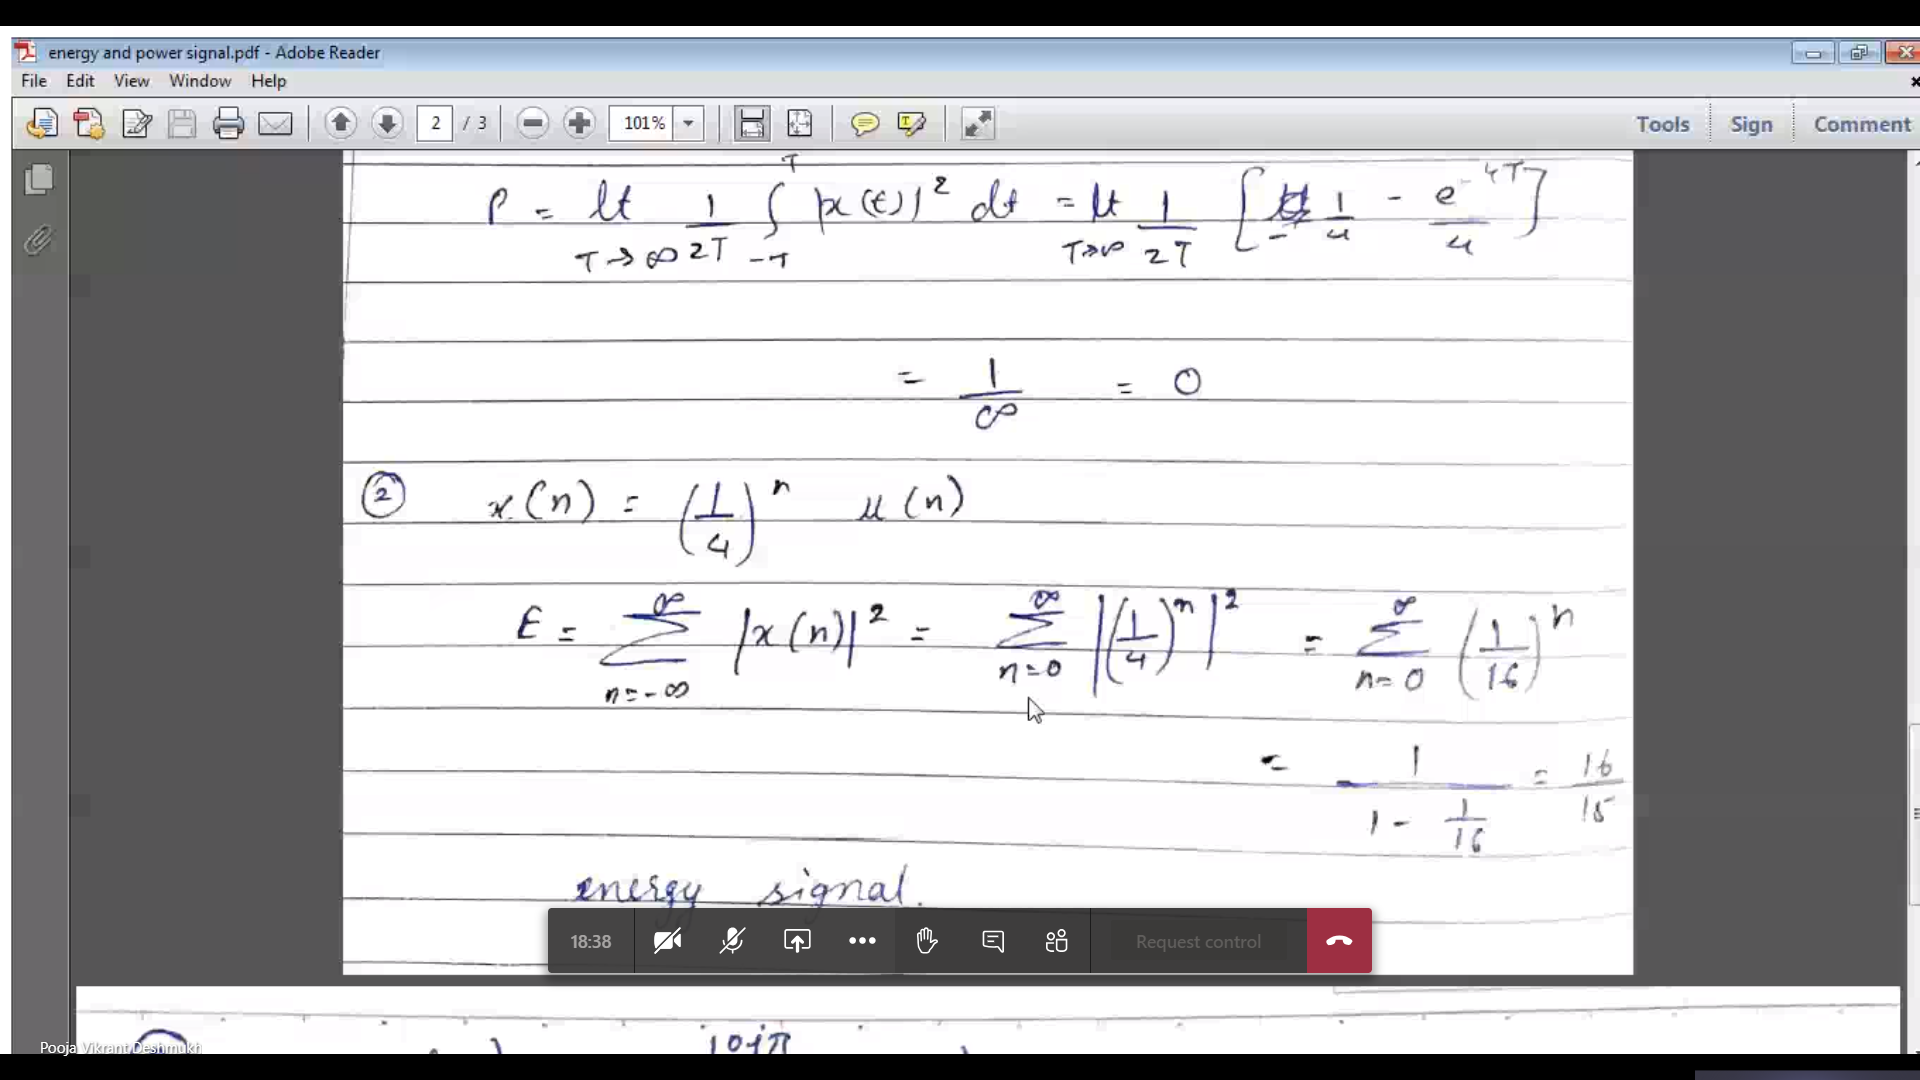 energy and power signal.pdf - Adobe Reader
File Edit View Window Help
2 / 3 101% Tools Sign Comment
P = lt T→∞ 1/2T ∫_{-T}^{T} |x(t)|² dt = lt T→∞ 1/2T [ 1/4 - e^{-4T}/4 ]
= 1/∞ = 0
② x(n) = (1/4)^n u(n)
E = ∑_{n=-∞}^{∞} |x(n)|² = ∑_{n=0}^{∞} |(1/4)^n|² = ∑_{n=0}^{∞} (1/16)^n
= 1/(1 - 1/16) = 16/15
energy signal.
18:38 Request control
Pooja Vikrant Deshmukh